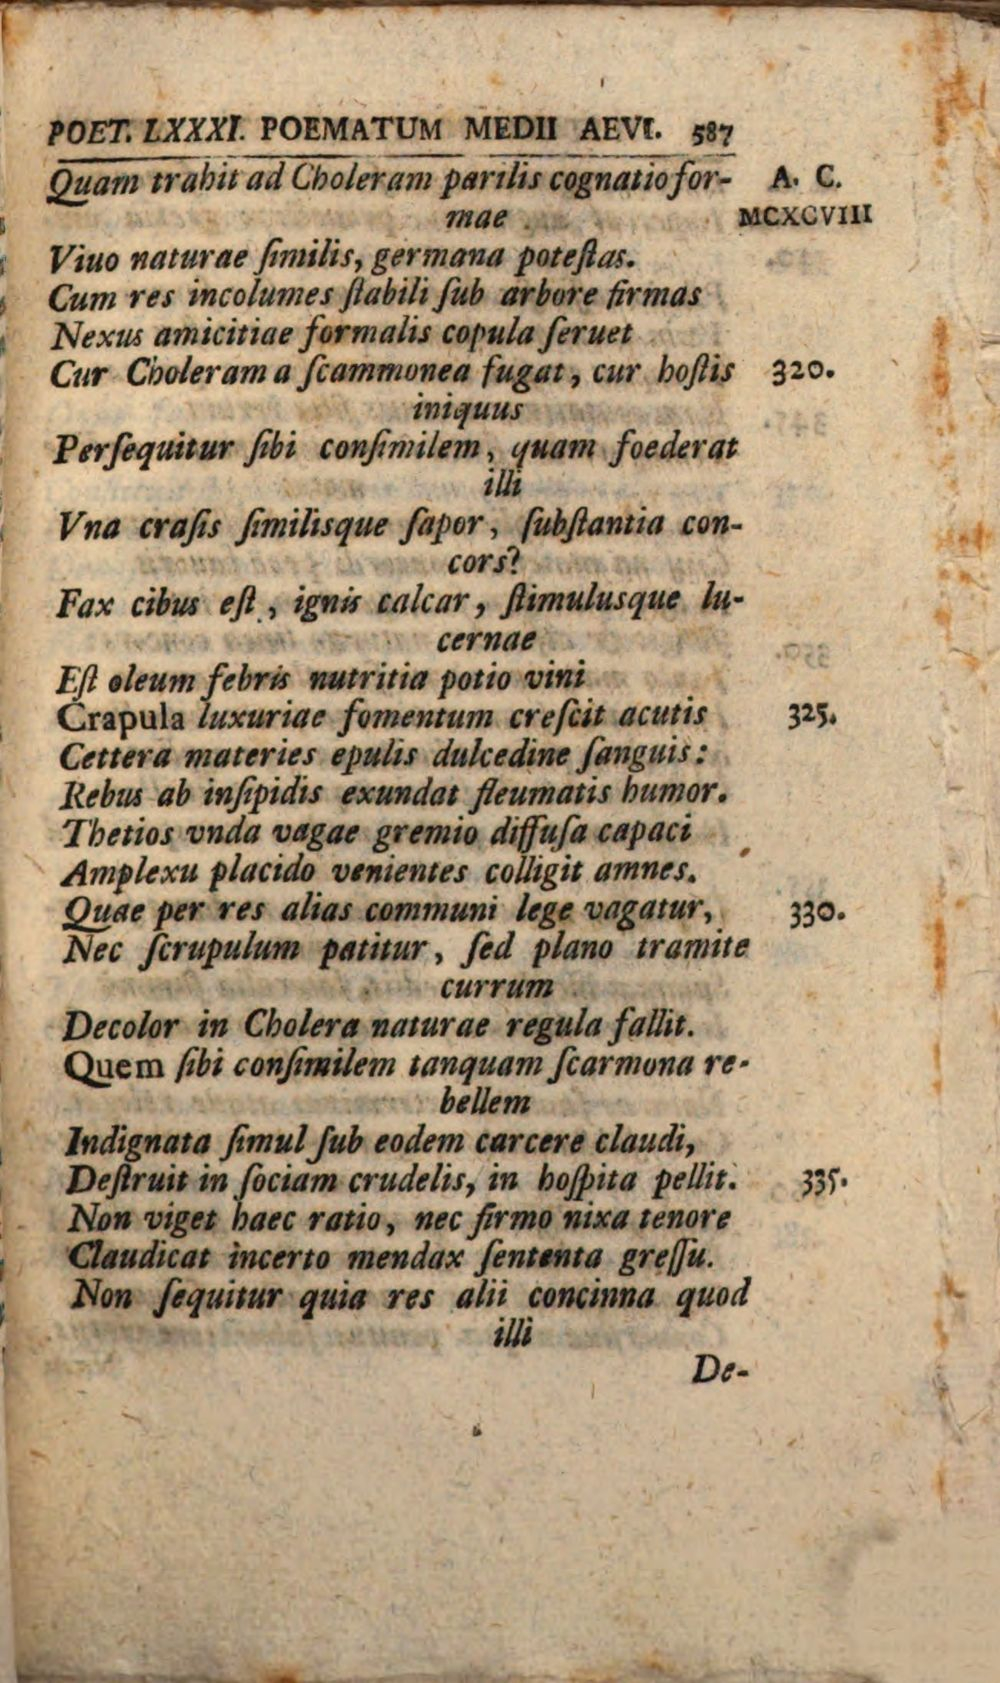 POET. LXXXI. POEMATUM MEDII AEVI. 587
Quam trahit ad Choleram parilis cognatio for- A. C.
mae MCXCVIII
Viuo naturae ſimilis, germana poteſtas.
Cum res incolumes ſtabili ſub arbore firmas
Nexus amicitiae formalis copula ſeruet
Cur Choleram a ſcammonea fugat, cur hoſtis 320.
iniquus
Perſequitur ſibi conſimilem, quam foederat
illi
Vna craſis ſimilisque ſapor, ſubſtantia con-
cors?
Fax cibus eſt, ignis calcar, ſtimulusque lu-
cernae
Eſt oleum febris nutritia potio vini
Crapula luxuriae fomentum creſcit acutis 325.
Cettera materies epulis dulcedine ſanguis:
Rebus ab inſipidis exundat fleumatis humor.
Thetios vnda vagae gremio diffuſa capaci
Amplexu placido venientes colligit amnes.
Quae per res alias communi lege vagatur, 330.
Nec ſcrupulum patitur, ſed plano tramite
currum
Decolor in Cholera naturae regula fallit.
Quem ſibi conſimilem tanquam ſcarmona re-
bellem
Indignata ſimul ſub eodem carcere claudi,
Deſtruit in ſociam crudelis, in hoſpita pellit. 335.
Non viget haec ratio, nec firmo nixa tenore
Claudicat incerto mendax ſententa greſſu.
Non ſequitur quia res alii concinna quod
illi
De-